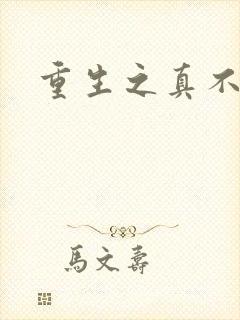 重生之真不
馬文壽